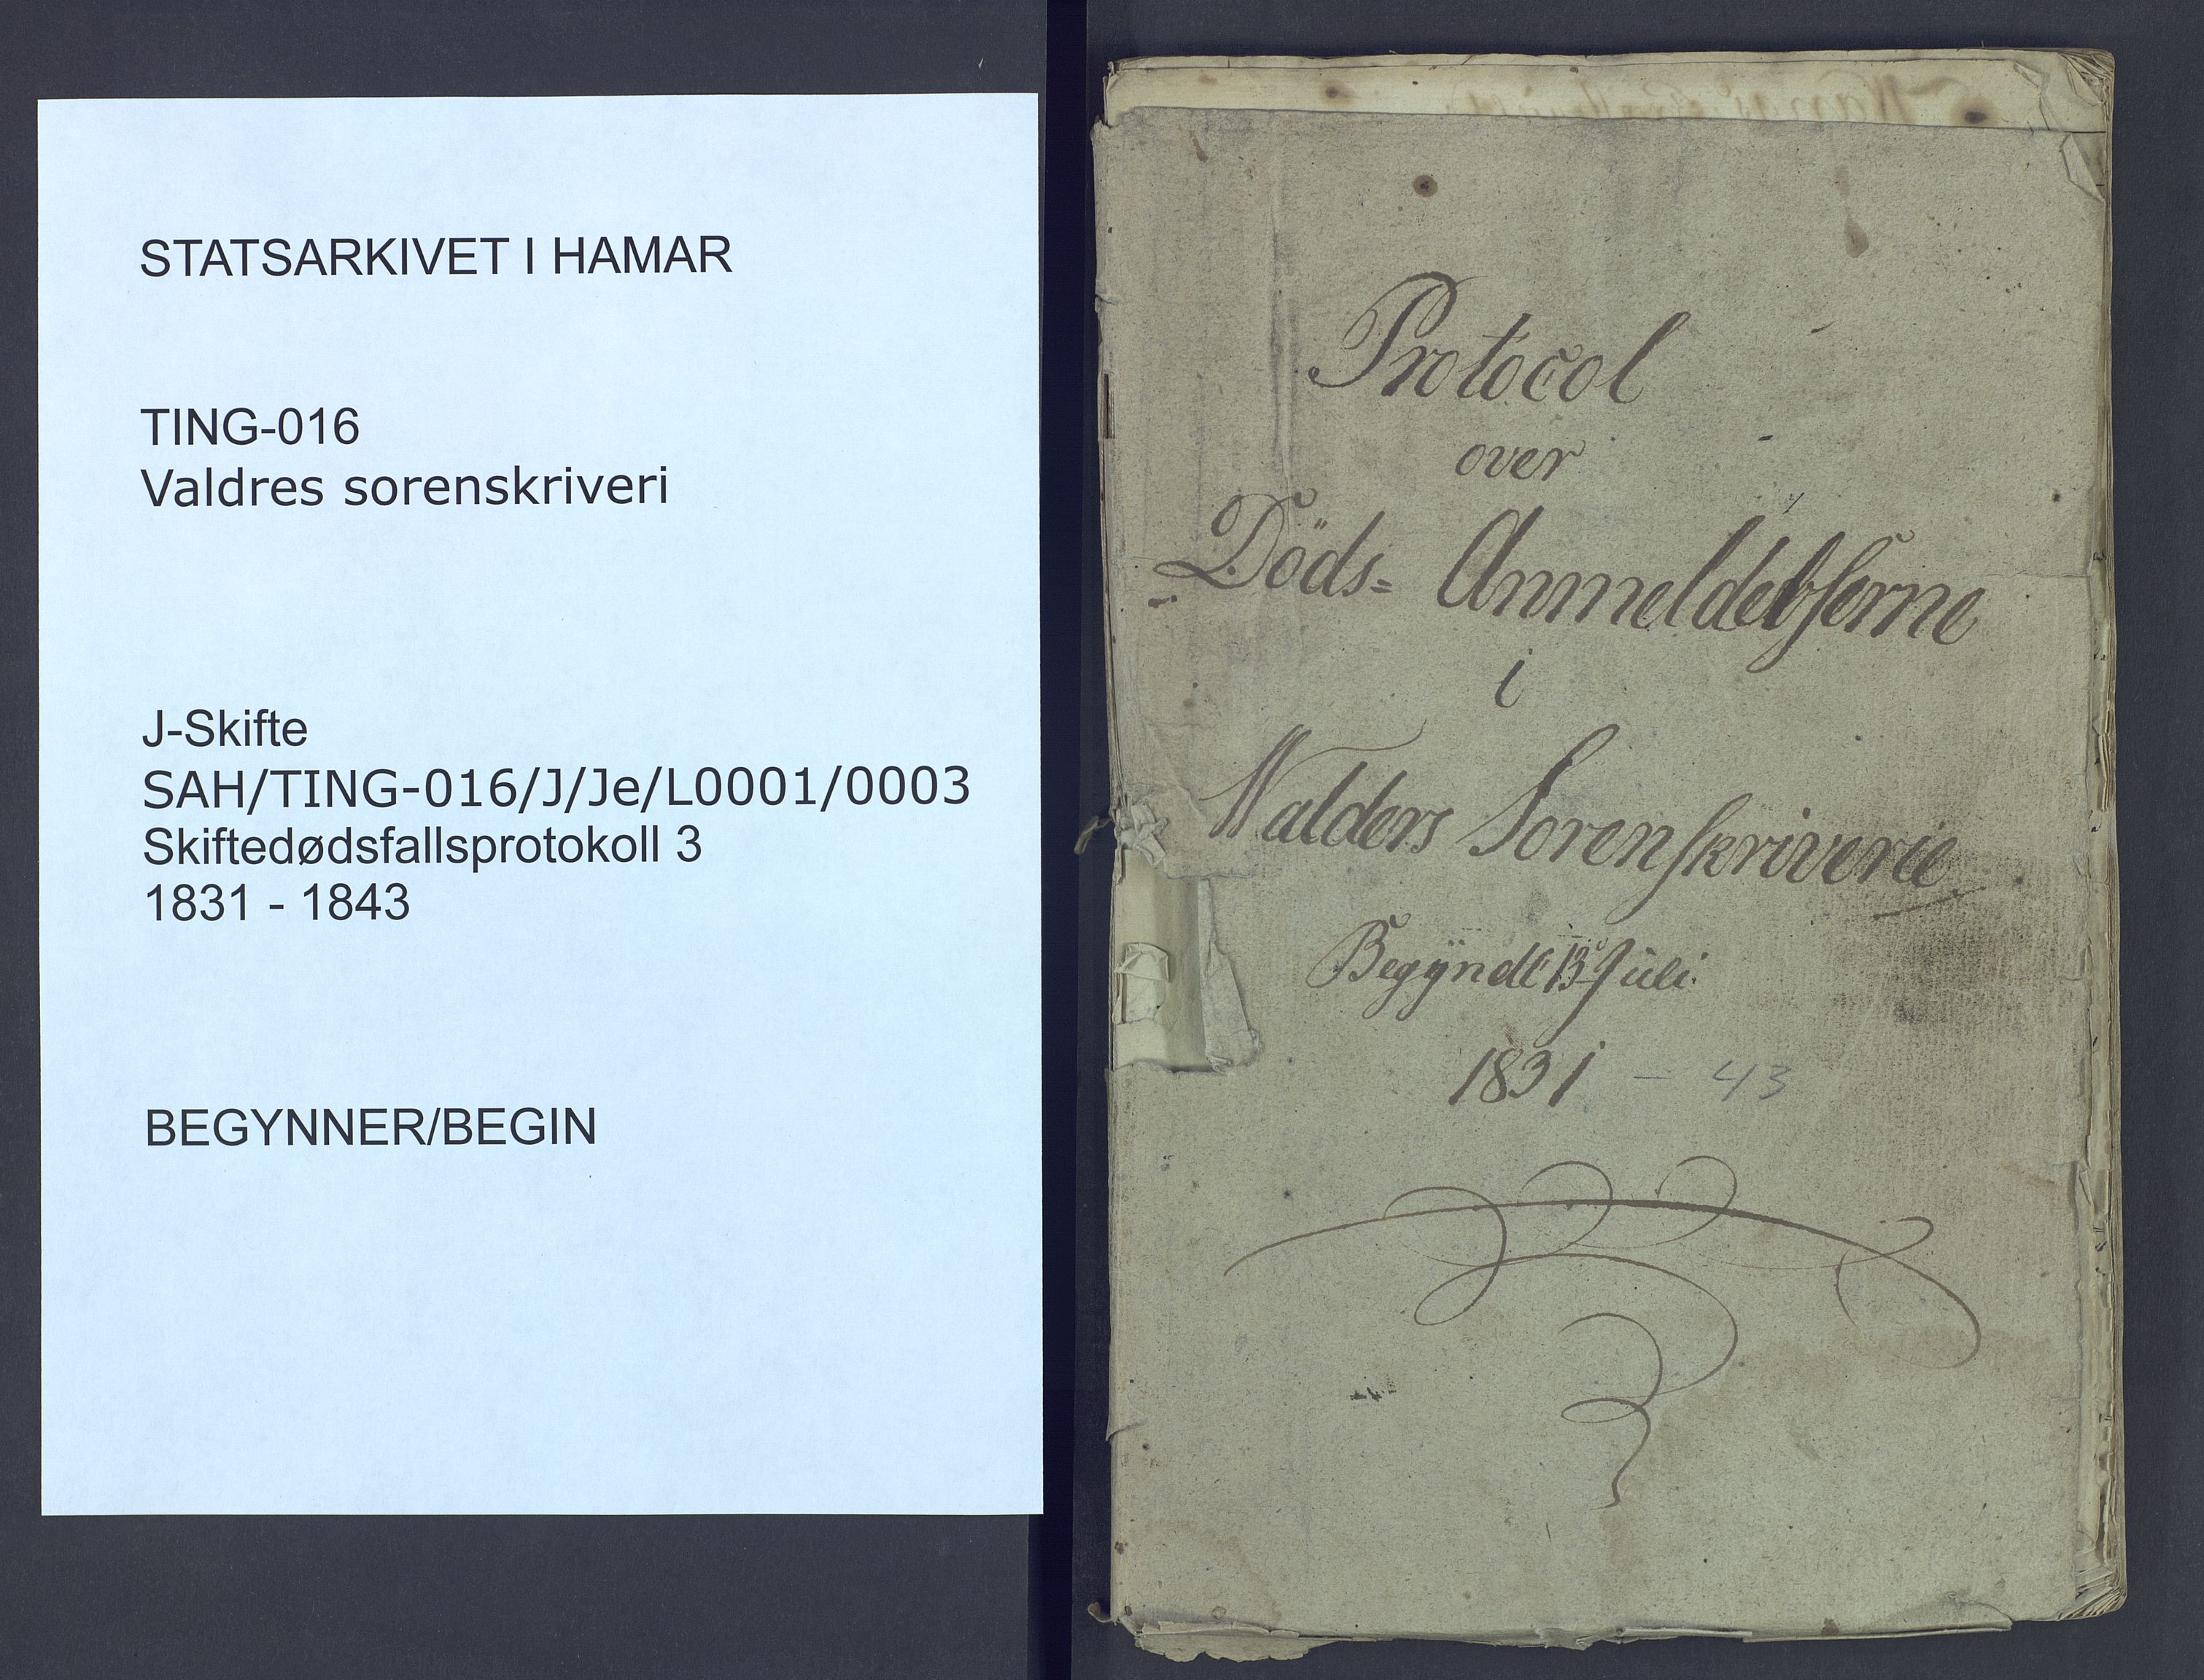 STATSARKIVET I HAMAR
TING-016
Valdres sorenskriveri
J-Skifte
SAH/TING-016/J/Je/L0001/0003
Skiftedødsfallsprotokoll 3
1831 - 1843
BEGYNNER/BEGIN
Protocol
over
Döds= Anmeldelserne
i
Walders Sorenskriverie
Begÿndt 13 Juli
1831 - 43